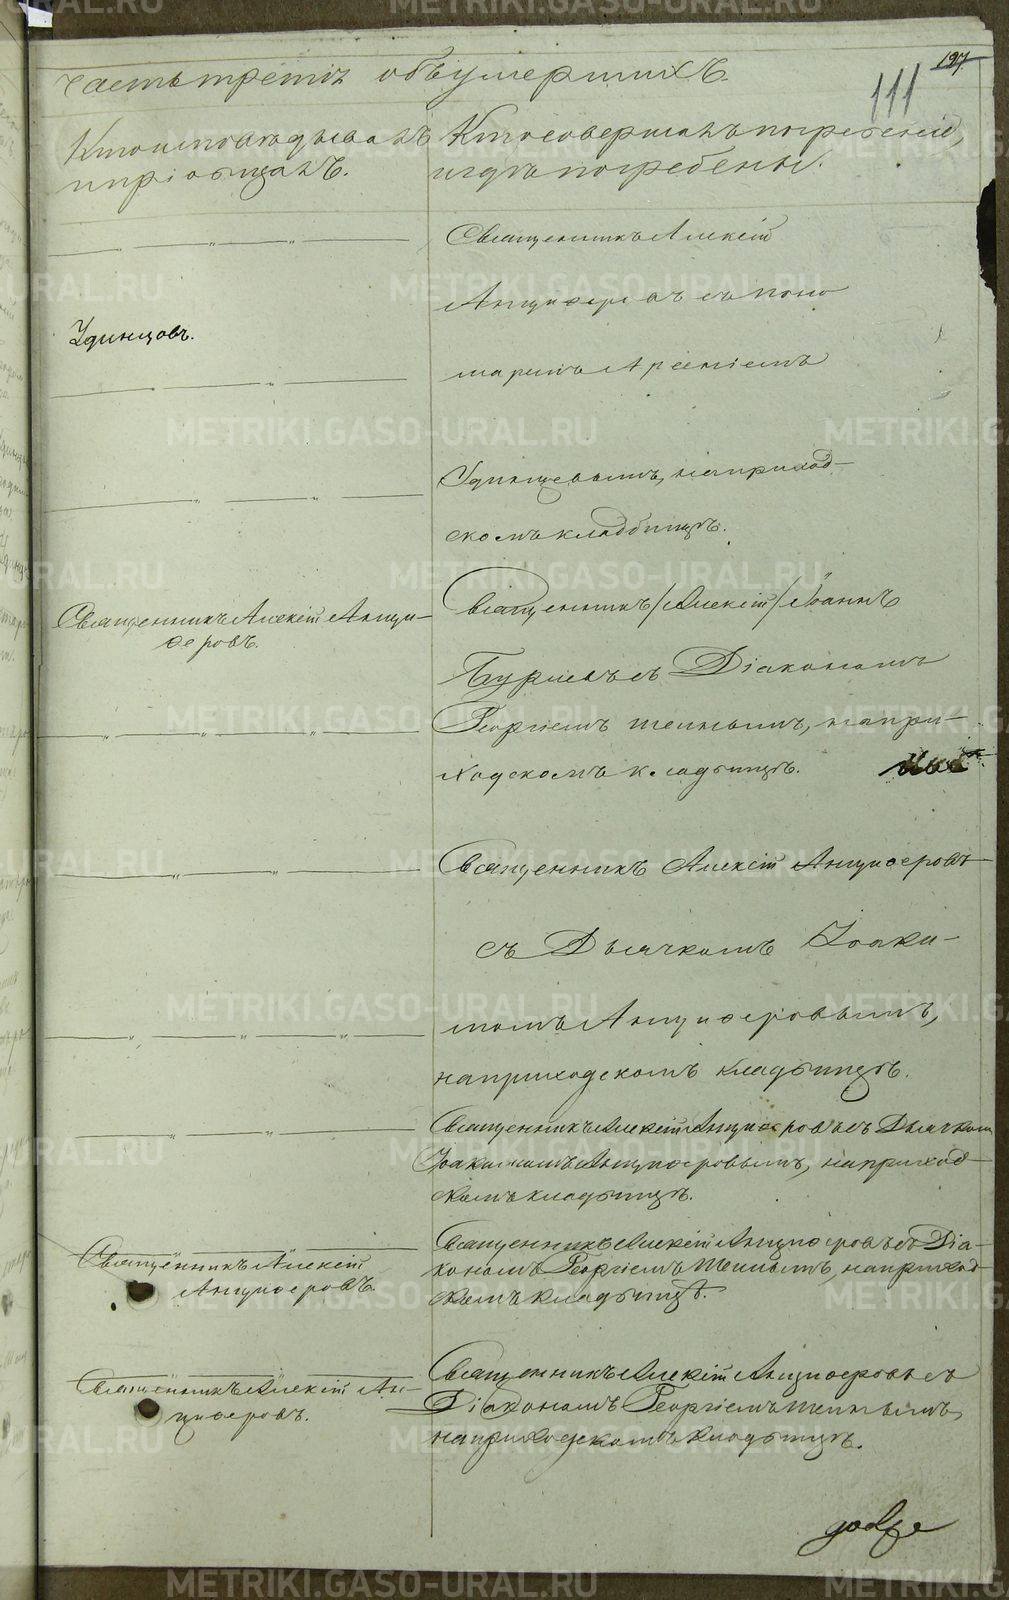 197
111
Часть третія объ умершихъ.
Кто исповѣдывалъ
и пріобщалъ.
Кто совершалъ погребеніе,
и гдѣ погребены.
Священникъ Алексій
Анциферовъ съ поно
Удинцовъ.
маремъ Арсеніемъ
Удинцевымъ, на приход-
скомъ кладбищѣ.
Священникъ Алексій Анци-
феровъ.
Священникъ /Алексій/ Іоаннъ
съ Діакономъ
Георгіемъ Тепнымъ, на при-
ходскомъ кладбищѣ.
Священникъ Алексій Анциферовъ
съ Дьячкомъ Іоаки-
момъ Анциферовымъ,
на приходскомъ кладбищѣ.
Священникъ Алексій Анциферовъ съ Дьячкомъ
Іоакимомъ Анциферовымъ, на приход-
скомъ кладбищѣ.
Священникъ Алексій
Анциферовъ.
Священникъ Алексій Анциферовъ съ Діа-
кономъ Георгіемъ Тепнымъ, на приход-
скомъ кладбищѣ.
Священникъ Алексій Ан-
циферовъ.
Священникъ Алексій Анциферовъ съ
Діакономъ Георгіемъ Тепнымъ,
на приходскомъ кладбищѣ.
METRIKI.GASO-URAL.RU